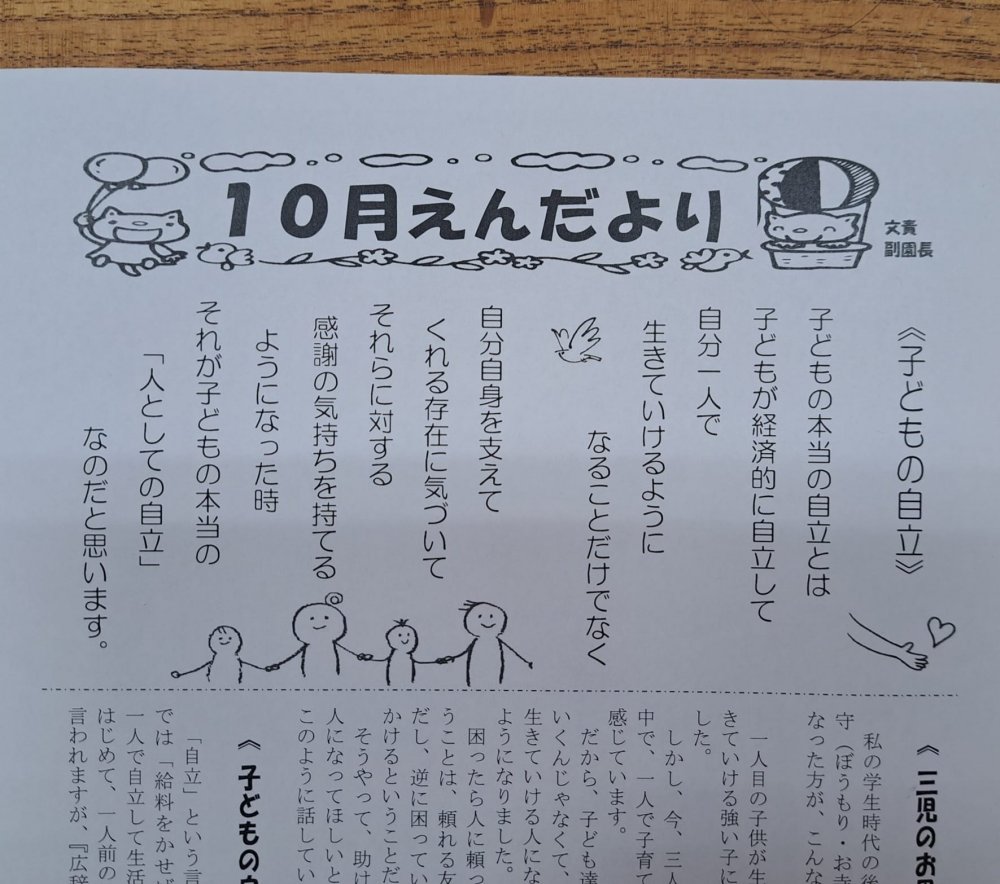 10月えんだより
文責
副園長
《子どもの自立》
子どもの本当の自立とは
子どもが経済的に自立して
自分一人で
生きていけるように
なることだけでなく
自分自身を支えて
くれる存在に気づいて
それらに対する
感謝の気持ちを持てる
ようになった時
それが子どもの本当の
「人としての自立」
なのだと思います。
《三児のお
私の学生時代の後
守（ぼうもり・お寺
なった方が、こんな
一人目の子供が生
きていける強い子に
した。
しかし、今、三人
中で、一人で子育て
感じています。
だから、子ども達
いくんじゃなくて、
生きていける人にな
ようになりました。
困ったら人に頼っ
うことは、頼れる友
だし、逆に困ってい
かけるということだ
そうやって、助け
人になってほしいと
このように話してい
《子どもの
「自立」という言
では「給料をかせぎ
一人で自立して生活
はじめて、一人前の
言われますが、『広辞